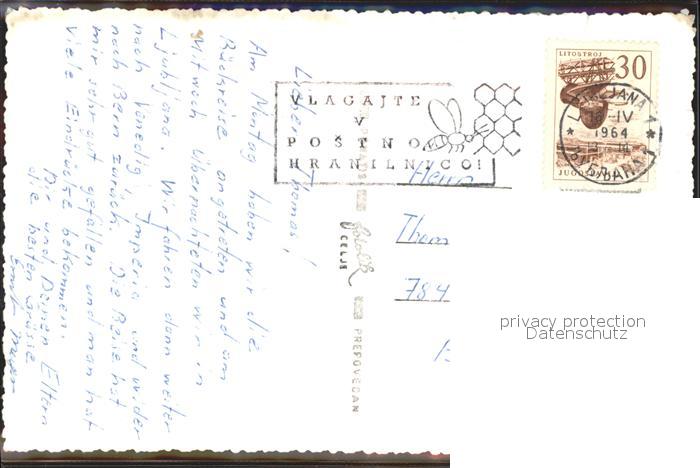 Lieber Thomas!
Am Montag haben wir die
Rückreise angetreten und am
Mitwoch übernachteten wir in
Ljubljana. Wir fahren dann weiter
nach Venedig, Imperia und wider
nach Bern zurück. Die Reise hat
mir sehr gut gefallen und man hat
viele Eindrücke bekommen.
Dir und Deinen Eltern
die besten Grüsse
VLAGAJTE
V
POŠTNO
HRANILNICO!
LITOSTROJ
30
JUGOSLAVIJA
LJUBLJANA 1
-IV
1964
Herrn
Thom
784
CELJE
PREPOVEDAN
privacy protection
Datenschutz